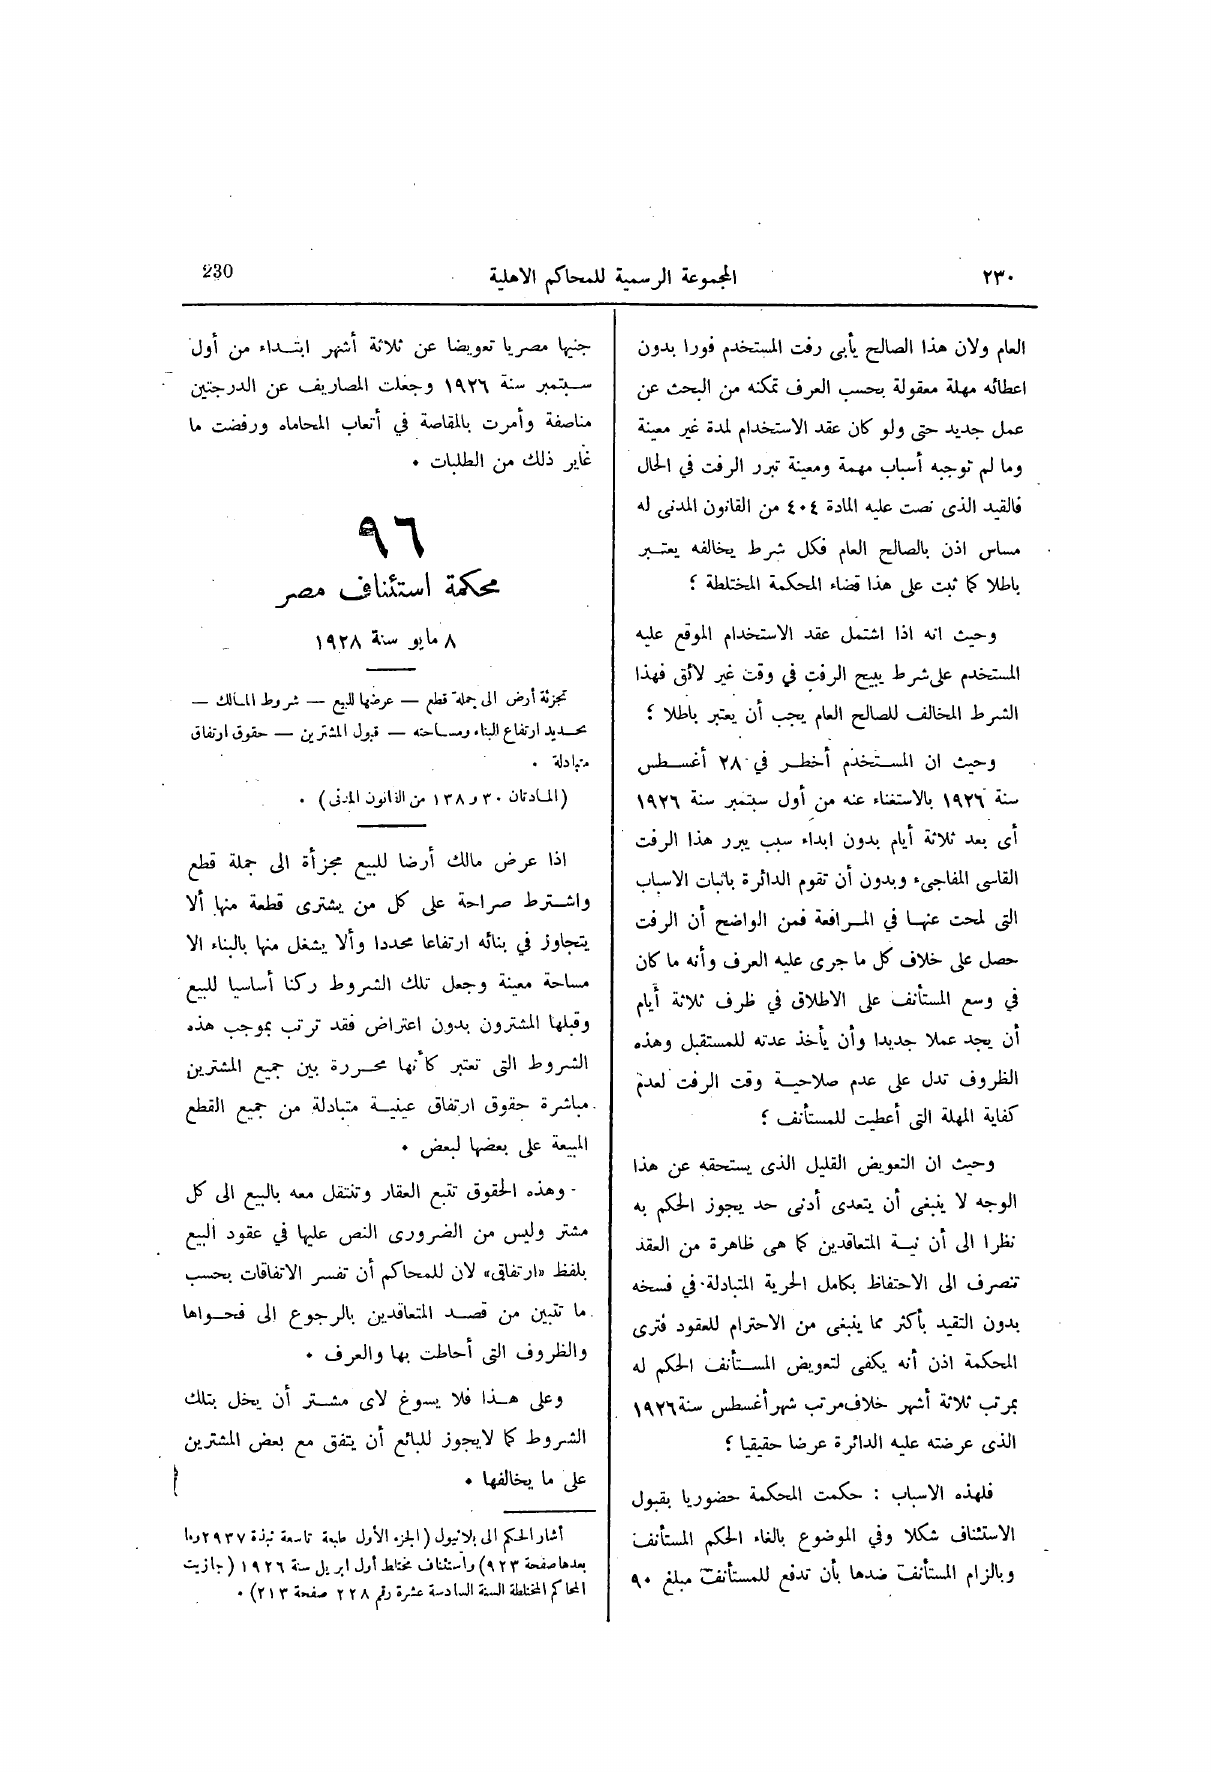 ٢٣٠
المجموعة الرسمية للمحاكم الاهلية
230
العام ولان هذا الصالح يأبى رفت المستخدم فورا بدون
اعطائه مهلة معقولة بحسب العرف تمكنه من البحث عن
عمل جديد حتى ولو كان عقد الاستخدام لمدة غير معينة
وما لم توجبه أسباب مهمة ومعينة تبرر الرفت في الحال
فالقيد الذى نصت عليه المادة ٤٠٤ من القانون المدنى له
مساس اذن بالصالح العام فكل شرط يخالفه يعتبر
باطلا كما ثبت على هذا قضاء المحكمة المختلطة ؛
وحيث انه اذا اشتمل عقد الاستخدام الموقع عليه
المستخدم على شرط يبيح الرفت في وقت غير لائق فهذا
الشرط المخالف للصالح العام يجب أن يعتبر باطلا ؛
وحيث ان المستخدم أخطر في ٢٨ أغسطس
سنة ١٩٢٦ بالاستغناء عنه من أول سبتمبر سنة ١٩٢٦
أى بعد ثلاثة أيام بدون ابداء سبب يبرر هذا الرفت
القاسى المفاجىء وبدون أن تقوم الدائرة باثبات الاسباب
التى لمحت عنها في المرافعة فمن الواضح أن الرفت
حصل على خلاف كل ما جرى عليه العرف وأنه ما كان
في وسع المستأنف على الاطلاق في ظرف ثلاثة أيام
أن يجد عملا جديدا وأن يأخذ عدته للمستقبل وهذه
الظروف تدل على عدم صلاحية وقت الرفت لعدم
كفاية المهلة التى أعطيت للمستأنف ؛
وحيث ان التعويض القليل الذى يستحقه عن هذا
الوجه لا ينبغى أن يتعدى أدنى حد يجوز الحكم به
نظرا الى أن نية المتعاقدين كما هى ظاهرة من العقد
تنصرف الى الاحتفاظ بكامل الحرية المتبادلة في فسخه
بدون التقيد بأكثر مما ينبغى من الاحترام للعقود فترى
المحكمة اذن أنه يكفى لتعويض المستأنف الحكم له
بمرتب ثلاثة أشهر خلاف مرتب شهر أغسطس سنة ١٩٢٦
الذى عرضته عليه الدائرة عرضا حقيقيا ؛
فلهذه الاسباب : حكمت المحكمة حضوريا بقبول
الاستئناف شكلا وفي الموضوع بالغاء الحكم المستأنف
وبالزام المستأنف ضدها بأن تدفع للمستأنف مبلغ ٩٠
جنيها مصريا تعويضا عن ثلاثة أشهر ابتداء من أول
سبتمبر سنة ١٩٢٦ وجعلت المصاريف عن الدرجتين
مناصفة وأمرت بالمقاصة في أتعاب المحاماه ورفضت ما
غاير ذلك من الطلبات .
٩٦
محكمة استئناف مصر
٨ مايو سنة ١٩٢٨
تجزئة أرض الى جملة قطع — عرضها للبيع — شروط المالك —
تحديد ارتفاع البناء ومساحته — قبول المشترين — حقوق ارتفاق
متبادلة .
(المادتان ٣٠ و ١٣٨ من القانون المدنى) .
اذا عرض مالك أرضا للبيع مجزأة الى جملة قطع
واشترط صراحة على كل من يشترى قطعة منها ألا
يتجاوز في بنائه ارتفاعا محددا وألا يشغل منها بالبناء الا
مساحة معينة وجعل تلك الشروط ركنا أساسيا للبيع
وقبلها المشترون بدون اعتراض فقد ترتب بموجب هذه
الشروط التى تعتبر كأنها محررة بين جميع المشترين
مباشرة حقوق ارتفاق عينية متبادلة من جميع القطع
المبيعة على بعضها لبعض .
وهذه الحقوق تتبع العقار وتنتقل معه بالبيع الى كل
مشتر وليس من الضرورى النص عليها في عقود البيع
بلفظ «ارتفاق» لان للمحاكم أن تفسر الاتفاقات بحسب
ما تتبين من قصد المتعاقدين بالرجوع الى فحواها
والظروف التى أحاطت بها والعرف .
وعلى هذا فلا يسوغ لاى مشتر أن يخل بتلك
الشروط كما لايجوز للبائع أن يتفق مع بعض المشترين
على ما يخالفها .
أشار الحكم الى بلانيول (الجزء الأول طبعة تاسعة نبذة ٢٩٣٧ وما
بعدها صفحة ٩٢٣) واستئناف مختلط أول ابريل سنة ١٩٢٦ (جازيت
المحاكم المختلطة السنة السادسة عشرة رقم ٢٢٨ صفحة ٢١٣) .